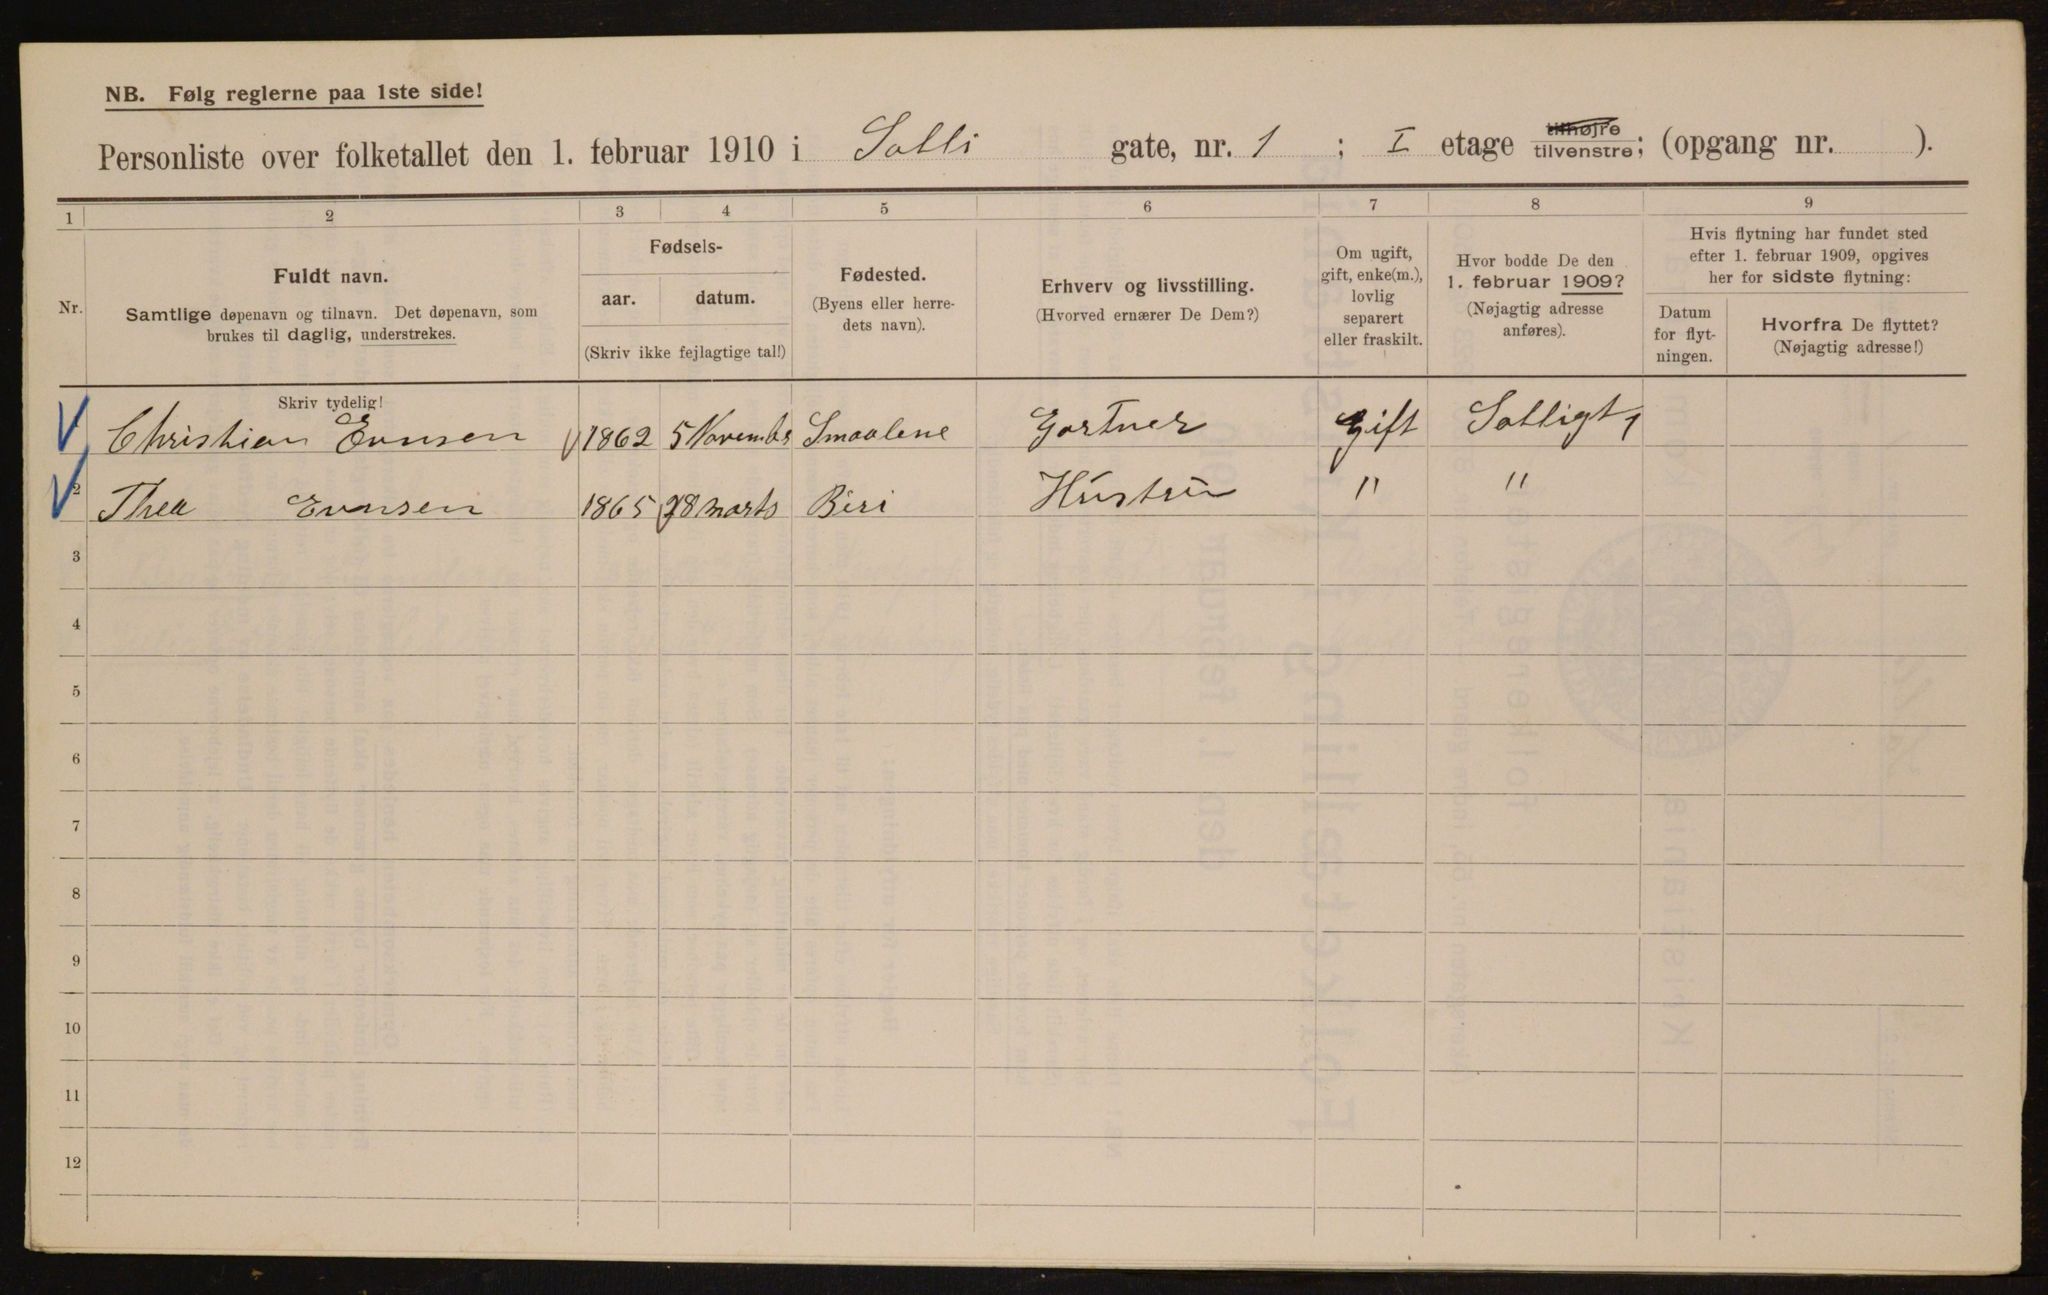 NB. Følg reglerne paa 1ste side!
Personliste over folketallet den 1. februar 1910 i Solli gate, nr. 1 ; I etage tilhøjre tilvenstre; (opgang nr. ).
1 2 3 4 5 6 7 8 9
Nr.
Fuldt navn.
Samtlige døpenavn og tilnavn. Det døpenavn, som
brukes til daglig, understrekes.
Fødsels-
aar. datum.
(Skriv ikke fejlagtige tal!)
Fødested.
(Byens eller herre-
dets navn).
Erhverv og livsstilling.
(Hvorved ernærer De Dem?)
Om ugift,
gift, enke(m.),
lovlig
separert
eller fraskilt.
Hvor bodde De den
1. februar 1909?
(Nøjagtig adresse
anføres).
Hvis flytning har fundet sted
efter 1. februar 1909, opgives
her for sidste flytning:
Datum
for flyt-
ningen.
Hvorfra De flyttet?
(Nøjagtig adresse!)
Skriv tydelig!
Christian Evnsen 1862 5 Novembr Smaalene Gartner Gift Solligt 1
2 Thea Evnsen 1865 28 marts Biri Hustru " "
3
4
5
6
7
8
9
10
11
12